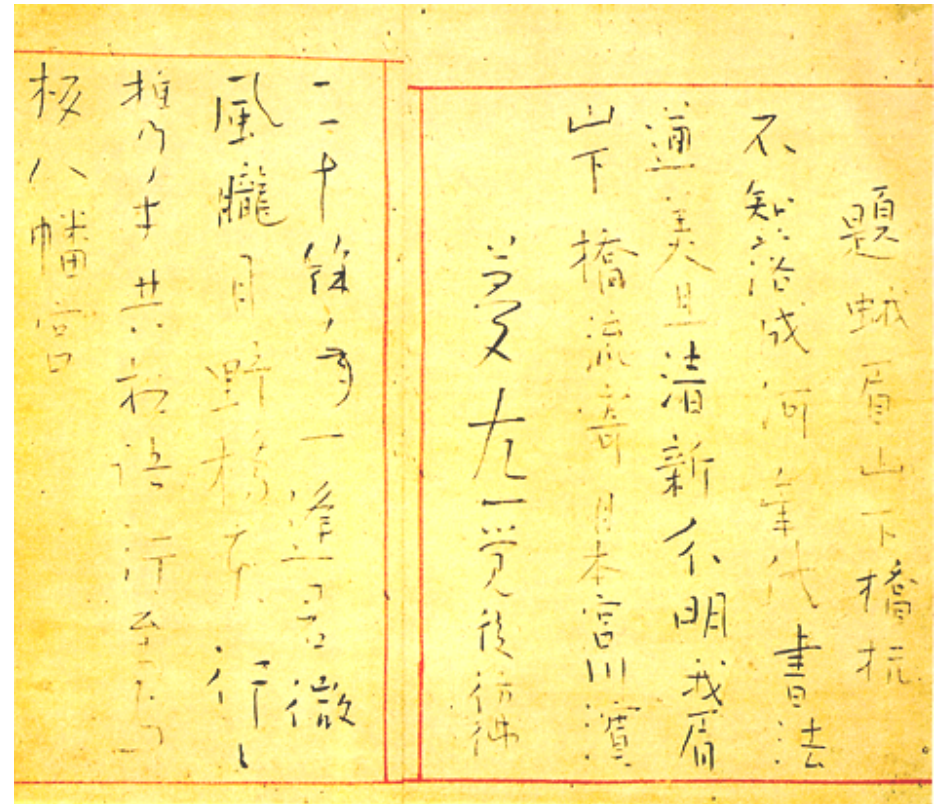 題蛾眉山下橋杭
不知落成何年代書法
遒美且清新分明我眉
山下橋流寄日本宮川濱
夢左一覚後彷彿
二十餘年一逢君微
風朧月野橋東行々
携手共相語行至与
板八幡宮